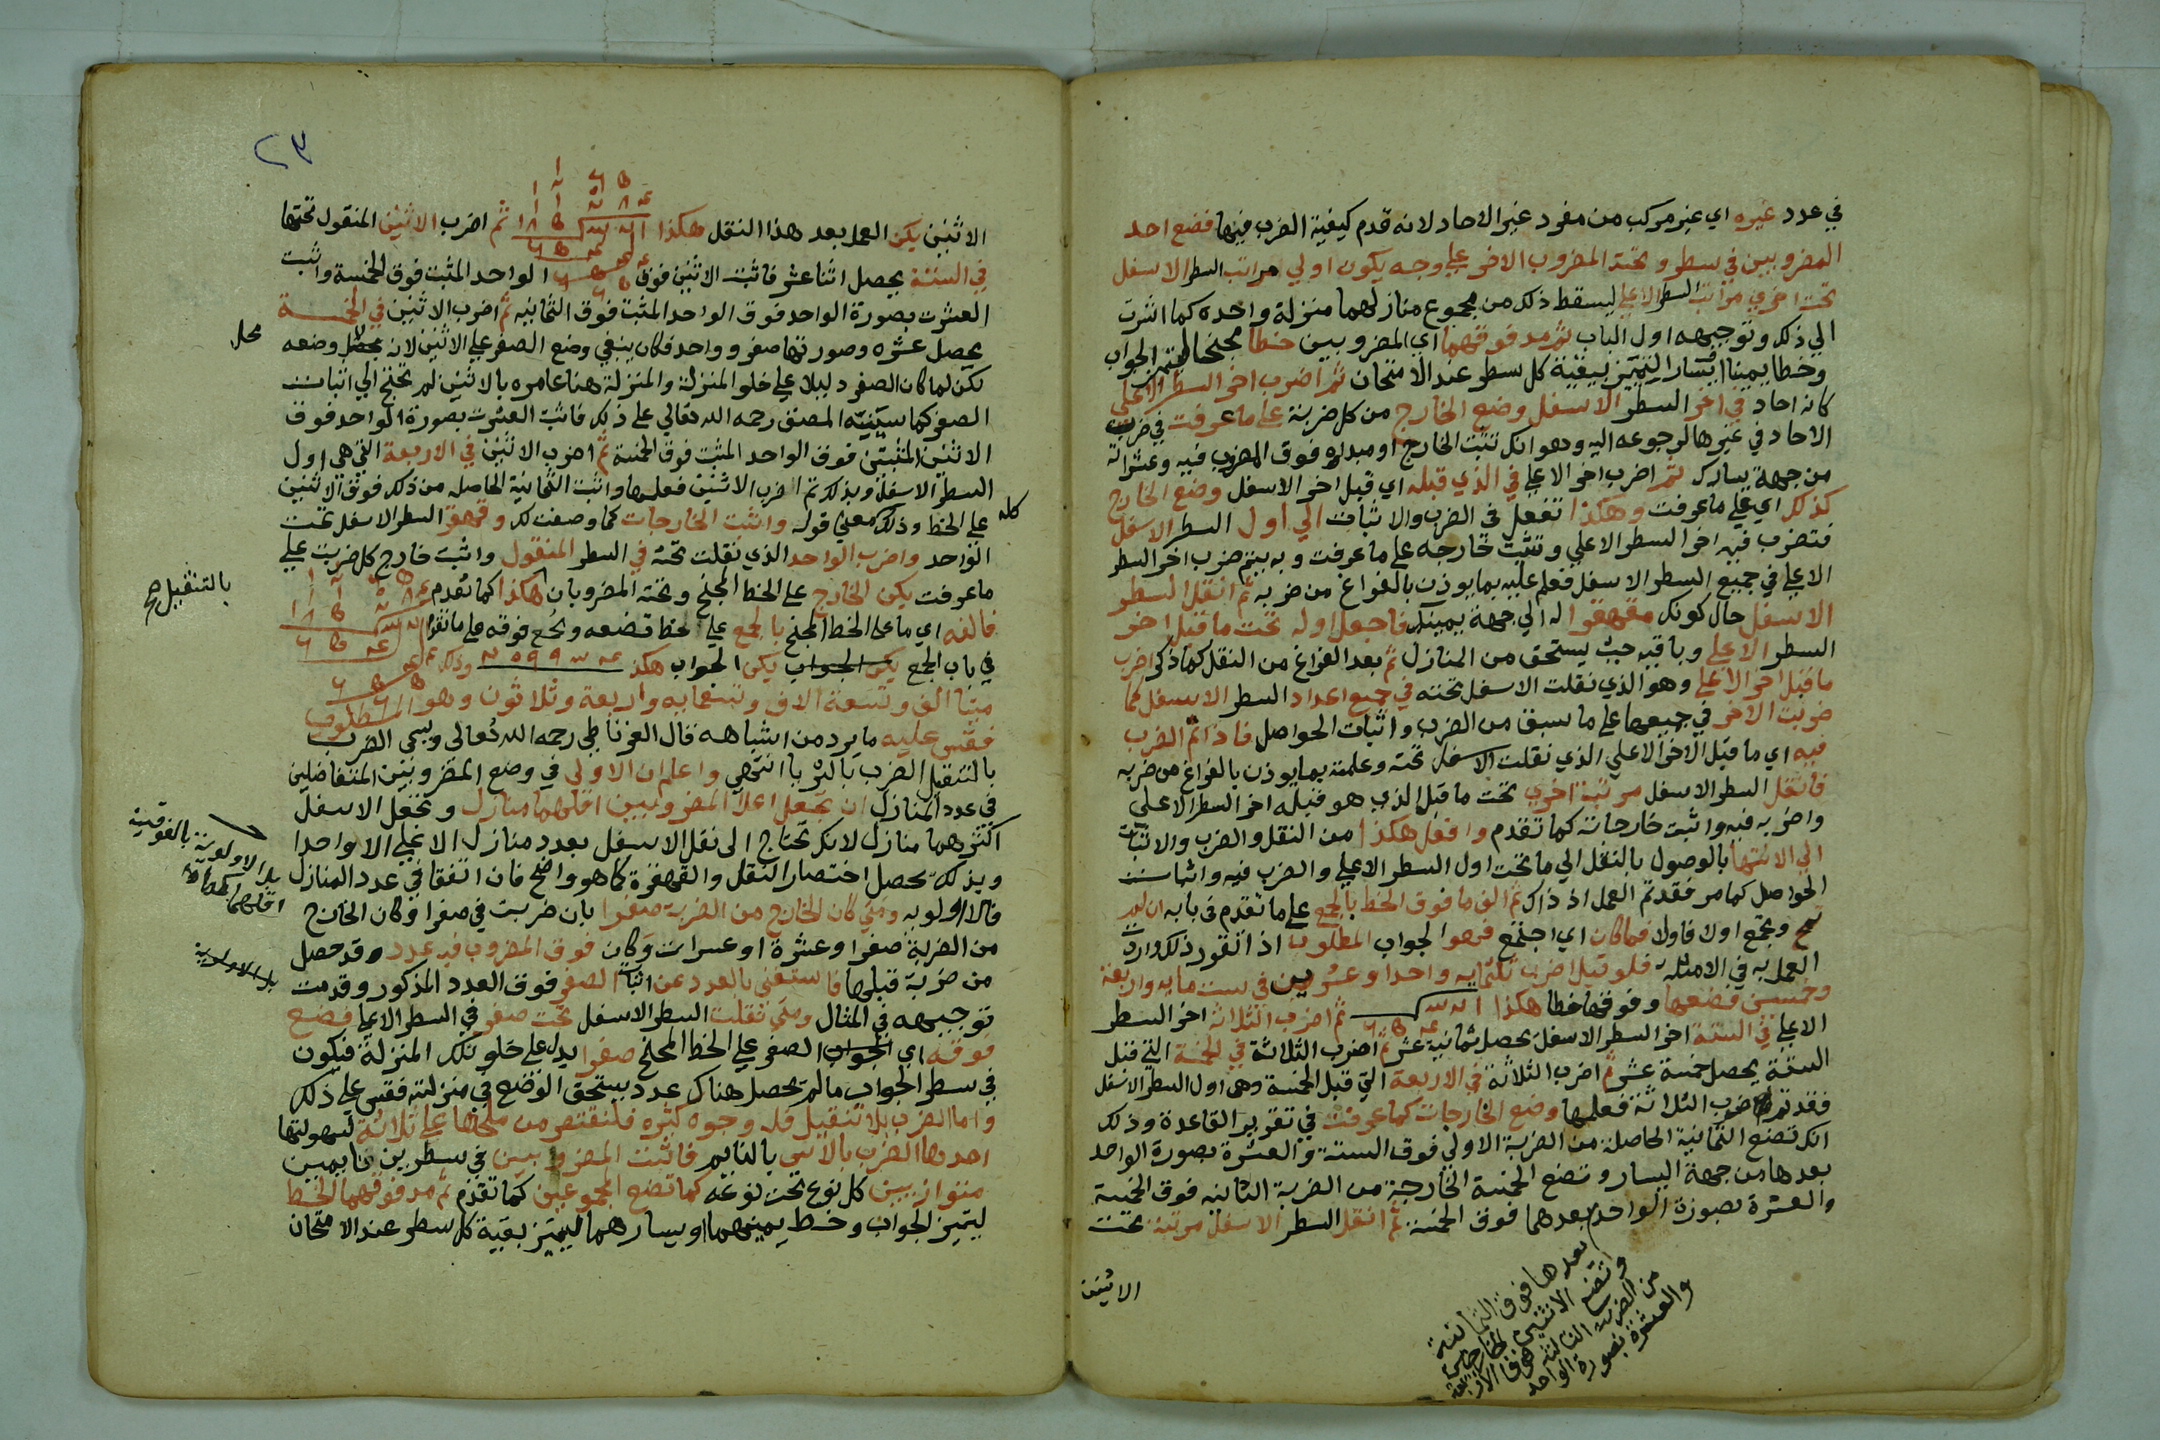 في عدد غيره اي غير مركب من مفرد غير الاحاد لانه قدم كيفية الضرب فيها فضع احد
المضروبين في سطر وتحته المضروب الاخر علي وجه يكون اولي مراتب السطر الاسفل
تحت اخري مراتب السطر الاعلي ليسقط ذلك من مجموع منازلهما منزلة واحده كما اشرت
الي ذلك وتوجيهه اول الباب ثم مد فوقهما اي المضروبين خطا مجنحا ليتميز الجواب
وخطا يمينا او يسارا ليتميز بقية كل سطر عند الامتحان ثم اضرب اخر السطر الاعلي
كانه احاد في اخر السطر الاسفل وضع الخارج من كل ضربة علي ما عرفت في ضرب
الاحاد في غيرها لرجوعه اليه وهو انك تثبت الخارج او مبداه فوق المضروب فيه وعشراته
من جهة يسارك ثم اضرب اخر الاعلي في الذي قبله اي قبل اخر الاسفل وضع الخارج
كذلك اي علي ما عرفت وهكذا تفعل في الضرب والاثبات الي اول السطر الاسفل
فتضرب فيه اخر السطر الاعلي وتثبت خارجه علي ما عرفت وبه يتم ضرب اخر السطر
الاعلي في جميع السطر الاسفل فعلم عليه بما يوذن بالفراغ من ضربه ثم انقل السطر
الاسفل حال كونك مقهقرا له الي جهة يمينك فاجعل اوله تحت ما قبل اخر
السطر الاعلي وباقيه حيث يستحق من المنازل ثم بعد الفراغ من النقل كما ذكر اضرب
ما قبل اخر الاعلي وهو الذي نقلت الاسفل تحته في جميع اعداد السطر الاسفل كما
ضربت الاخر في جميعها علي ما سبق من الضرب واثبات الحواصل فاذا تم الضرب
فيه اي ما قبل الاخر الاعلي الذي نقلت الاسفل تحته وعلمته بما يوذن بالفراغ من ضربه
فانقل السطر الاسفل مرتبة اخري تحت ما قبل الذي هو قبله اخر السطر الاعلي
واضربه فيه واثبت خارجاته كما تقدم وافعل هكذا من النقل والضرب والاثبات
الي الانتها بالوصول بالنقل الي ما تحت اول السطر الاعلي والضرب فيه واثبات
الحواصل كما مر فقد تم العمل اذ ذاك ثم الق ما فوق الخط بالجمع علي ما تقدم في بابه ان لم
وتجمع اولا فاولا فما كان اي اجتمع فهو الجواب المطلوب اذا تقرر ذلك واردت
العمل به في الامثله فلو قيل اضرب ثلثمايه واحدا وعشرين في ست مايه واربعة
وخمسين فضعها وفوقها خطا هكذا ثم اضرب الثلاثة اخر السطر
الاعلي في الستة اخر السطر الاسفل يحصل ثمانية عشر ثم اضرب الثلاثة في الخمسة التي قبل
الستة يحصل خمسة عشر ثم اضرب الثلاثة في الاربعة التي قبل الخمسة وهي اول السطر الاسفل
فقد تم ضرب الثلاثة فعلمها وضع الخارجات كما عرفت في تقرير القاعدة وذلك
انك تضع الثمانية الحاصلة من الضربة الاولي فوق الستة والعشرة بصورة الواحد
بعدها من جهة اليسار وتضع الخمسة الخارجة من الضربة الثانيه فوق الخمسة
والعشرة بصورة الواحد بعدهما فوق الخمسة ثم انقل السطر الاسفل مرتبة تحت
بعدها فوق الثمانية
وتضع الاثنين الخارجين
من الضربة الثالثة فوق الاربعة
والعشرة بصورة الواحد
الاثنين
٢٣
الاثنين يكن العمل بعد هذا النقل هكذا ثم اضرب الاثنين المنقول تحتها
في الستة يحصل اثنا عشر فاثبت الاثنين فوق الواحد المثبت فوق الخمسة واثبت
العشرت بصورة الواحد فوق الواحد المثبت فوق الثمانيه ثم اضرب الاثنين في الخمسة
يحصل عشره وصورتها صفر وواحد فكان ينبغي وضع الصفر علي الاثنين لانه محل وضعه
محل
لكن لما كان الصفر دليلا علي خلو المنزلة والمنزلة هنا عامره بالاثنين لم تحتج الي اثبات
الصفر كما سيبينه المصنف رحمه الله تعالي علي ذلك فاثبت العشرت بصورة الواحد فوق
الاثنين المثبتين فوق الواحد المثبت فوق الخمسة ثم اضرب الاثنين في الاربعة التي هي اول
السطر الاسفل وبذلك تم ضرب الاثنين فعلمها واثبت الثمانية الحاصله من ذلك فوق الاثنين
كله
علي الخط وذلك معني قوله واثبت الخارجات كما وصفت لك وقهقر السطر الاسفل تحت
الواحد واضرب الواحد الذي نقلت تحته في السطر المنقول واثبت خارج كل ضربت علي
ما عرفت يكن الخارج علي الخط المجنح وتحته المضروبان هكذا كما تقدم
بالتنقيل صح
فالقه اي ما علي الخط المجنح بالجمع علي خط تضعه وتجمع فوقه علي ما تقدم
في باب الجمع يكن الجواب يكن الجواب هكذا وذلك
متا الف وتسعة الاف وتسعمايه واربعة وثلاثون وهو المطلوب
فقس عليه ما يرد من اشباهه قال الغرناطي رحمه الله تعالي ويسمي الضرب
بالتنقيل الضرب بالبربا انتهي واعلم ان الاولي في وضع المضروبين المتفاضلين
في عدد المنازل ان تجعل اعلا المضروبين اقلهما منازل وتجعل الاسفل
اكثرهما منازل لانك تحتاج الي نقل الاسفل بعدد منازل الاعلي الا واحدا
وبذلك يحصل اختصار النقل والقهقرة كما هو واضح فان اتفقا في عدد المنازل
فالاولويه ومتي كان الخارج من الضربة صفرا بان ضربت في صفرا وكان الخارج
من الضربة صفرا وعشرة او عشرات وكان فوق المضروب فيه عدد وقد حصل
من ضربة قبلها فاستغني بالعدد عن اثبات الصفر فوق العدد المذكور وقدمت
توجيهه في المثال ومتي نقلت السطر الاسفل تحت صفر في السطر الاعلي فضع
فوقه اي الجواب الصفر علي الخط المجنح صفرا يدل علي خلو تلك المنزلة فيكون
في سطر الجواب ما لم يحصل هناك عدد يستحق الوضع في منزلته فقس علي ذلك
واما الضرب بلا تنقيل فله وجوه كثيره فلنقتصر من ملحها علي ثلاثة لسهولتها
احدها الضرب بالاسي بالنايم فاثبت المضروبين في سطرين نايمين
متوازيين كل نوع تحت نوعه كما تضع المجموعين كما تقدم ثم مد فوقهما الخط
ليتميز الجواب وخط يمينهما او يسارهما ليتميز بقية كل سطر عند الامتحان